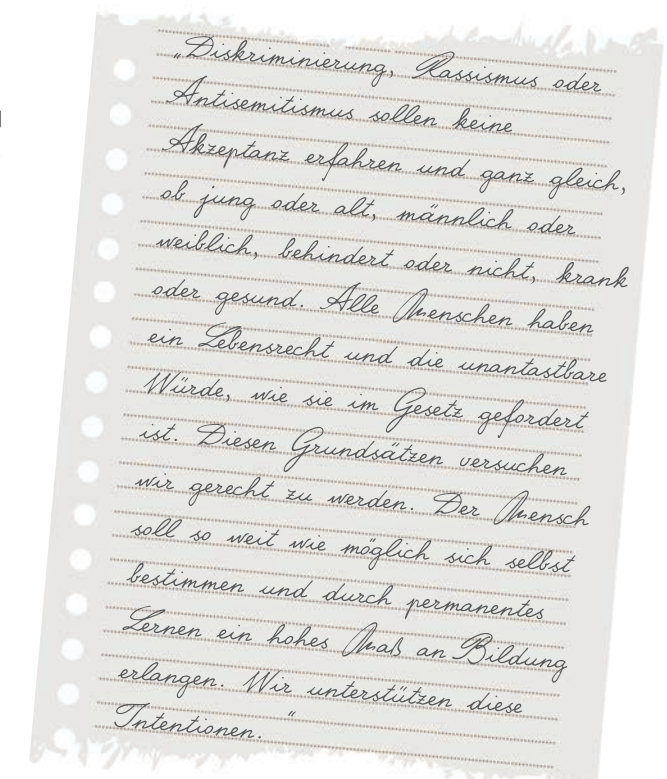 „Diskriminierung, Rassismus oder
Antisemitismus sollen keine
Akzeptanz erfahren und ganz gleich,
ob jung oder alt, männlich oder
weiblich, behindert oder nicht, krank
oder gesund. Alle Menschen haben
ein Lebensrecht und die unantastbare
Würde, wie sie im Gesetz gefordert
ist. Diesen Grundsätzen versuchen
wir gerecht zu werden. Der Mensch
soll so weit wie möglich sich selbst
bestimmen und durch permanentes
Lernen ein hohes Maß an Bildung
erlangen. Wir unterstützen diese
Intentionen."